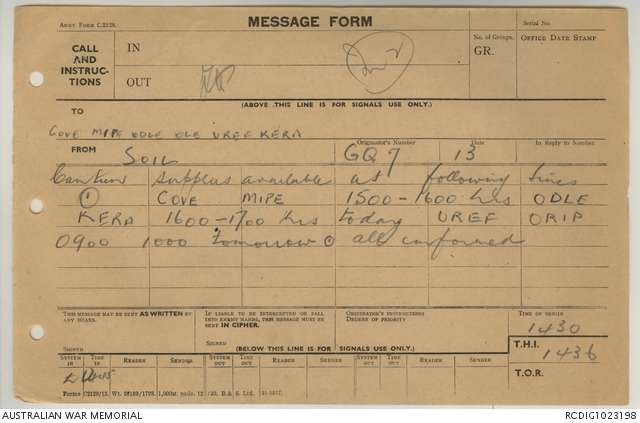 ARMY FORM C.2128.
MESSAGE FORM
Serial No.
CALL AND INSTRUC- TIONS
IN
OUT
No. of Groups.
GR.
OFFICE DATE STAMP
(ABOVE THIS LINE IS FOR SIGNALS USE ONLY.)
TO
COVE MIPE ODLE OLE UREF KERA
FROM
SOIL
Originator's Number
GQ 7
Date
13
In Reply to Number
Canteen supplies available at following times
① COVE MIPE 1500-1600 hrs ODLE
KERA 1600-1700 hrs today UREF ORIP
0900 1000 tomorrow ⊙ all confirmed
THIS MESSAGE MAY BE SENT AS WRITTEN BY ANY MEANS.
IF LIABLE TO BE INTERCEPTED OR FALL INTO ENEMY HANDS, THIS MESSAGE MUST BE SENT IN CIPHER.
ORIGINATOR'S INSTRUCTIONS
DEGREE OF PRIORITY
TIME OF ORIGIN
1430
SIGNED
SIGNED
(BELOW THIS LINE IS FOR SIGNALS USE ONLY.)
T.H.I.
1436
SYSTEM IN
TIME IN
READER
SENDER
SYSTEM OUT
TIME OUT
READER
SENDER
SYSTEM OUT
TIME OUT
READER
SENDER
T.O.R.
AUSTRALIAN WAR MEMORIAL
RCDIG1023198